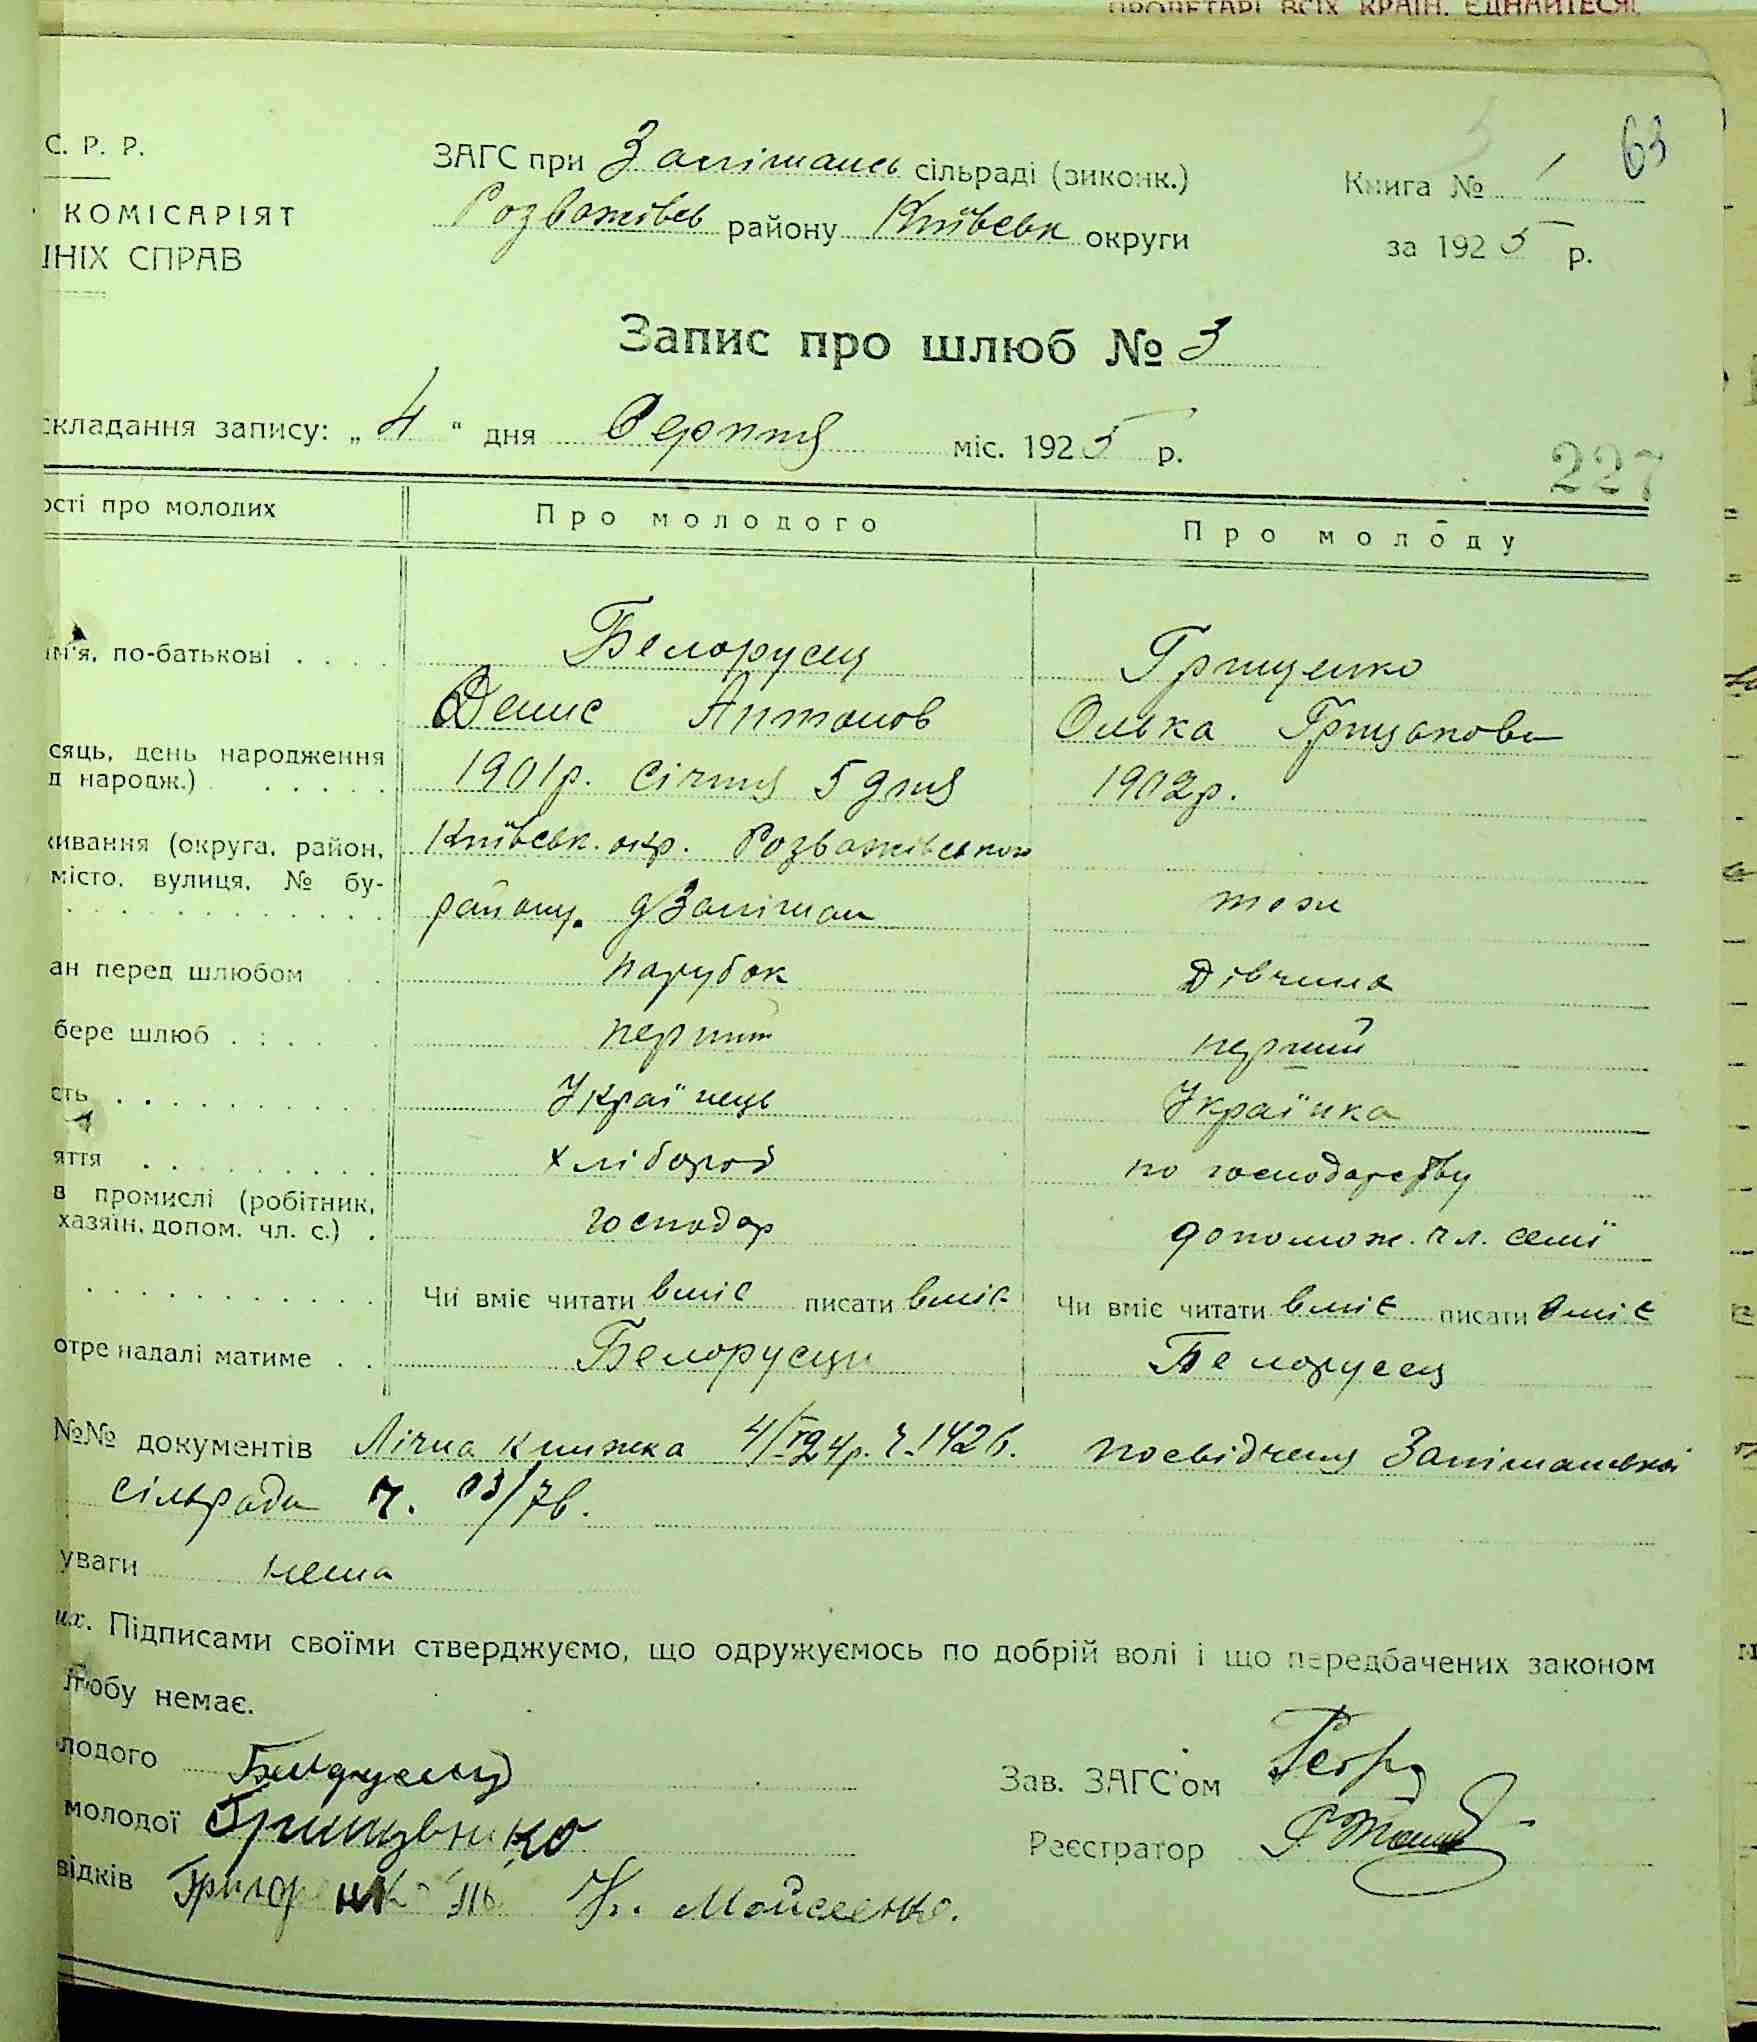 ПРОЛЕТАРІ ВСІХ КРАЇН, ЄДНАЙТЕСЯ!
63
С. Р. Р.
ЗАГС при Запішансь сільраді (виконк.)
Книга № 1
КОМІСАРІЯТ
Розважівсь району Київськ округи
за 1925 р.
ШНІХ СПРАВ
Запис про шлюб № 3
складання запису: „ 4 “ дня Серпня міс. 1925 р.
227
ості про молодих
Про молодого
Про молоду
ім'я, по-батькові . . . .
Белорусец
Грищенко
Денис Антонов
Олька Грицькова
сяць, день народження
д народж.) . . . . . .
1901р. Січня 5 дня
1902р.
живання (округа, район,
місто, вулиця, № бу-
Київськ. окр. Розважівського
району. д Запішан
тож
ан перед шлюбом . .
парубок
Дівчина
бере шлюб . : . . .
перший
перший
сть . . . . . . . . . .
Українець
Українка
яття . . . . . . . . .
хлібороб
по господарству
в промислі (робітник,
хазяїн, допом. чл. с.) .
господар
допомож. чл. семї
Чи вміє читати вміє писати вміє
Чи вміє читати вміє писати вміє
отре надалі матиме . .
Белорусец
Белорусец
№№ документів Лічна книжка 4/ 24р. ч. 1426. посвідченя Запішанської
сільради ч. 03/76.
уваги нема
их. Підписами своїми стверджуємо, що одружуємось по добрій волі і що передбачених законом
шлюбу немає.
олодого
Зав. ЗАГС'ом
молодої Грищенко
Реєстратор
відків К. Мойсеенко.